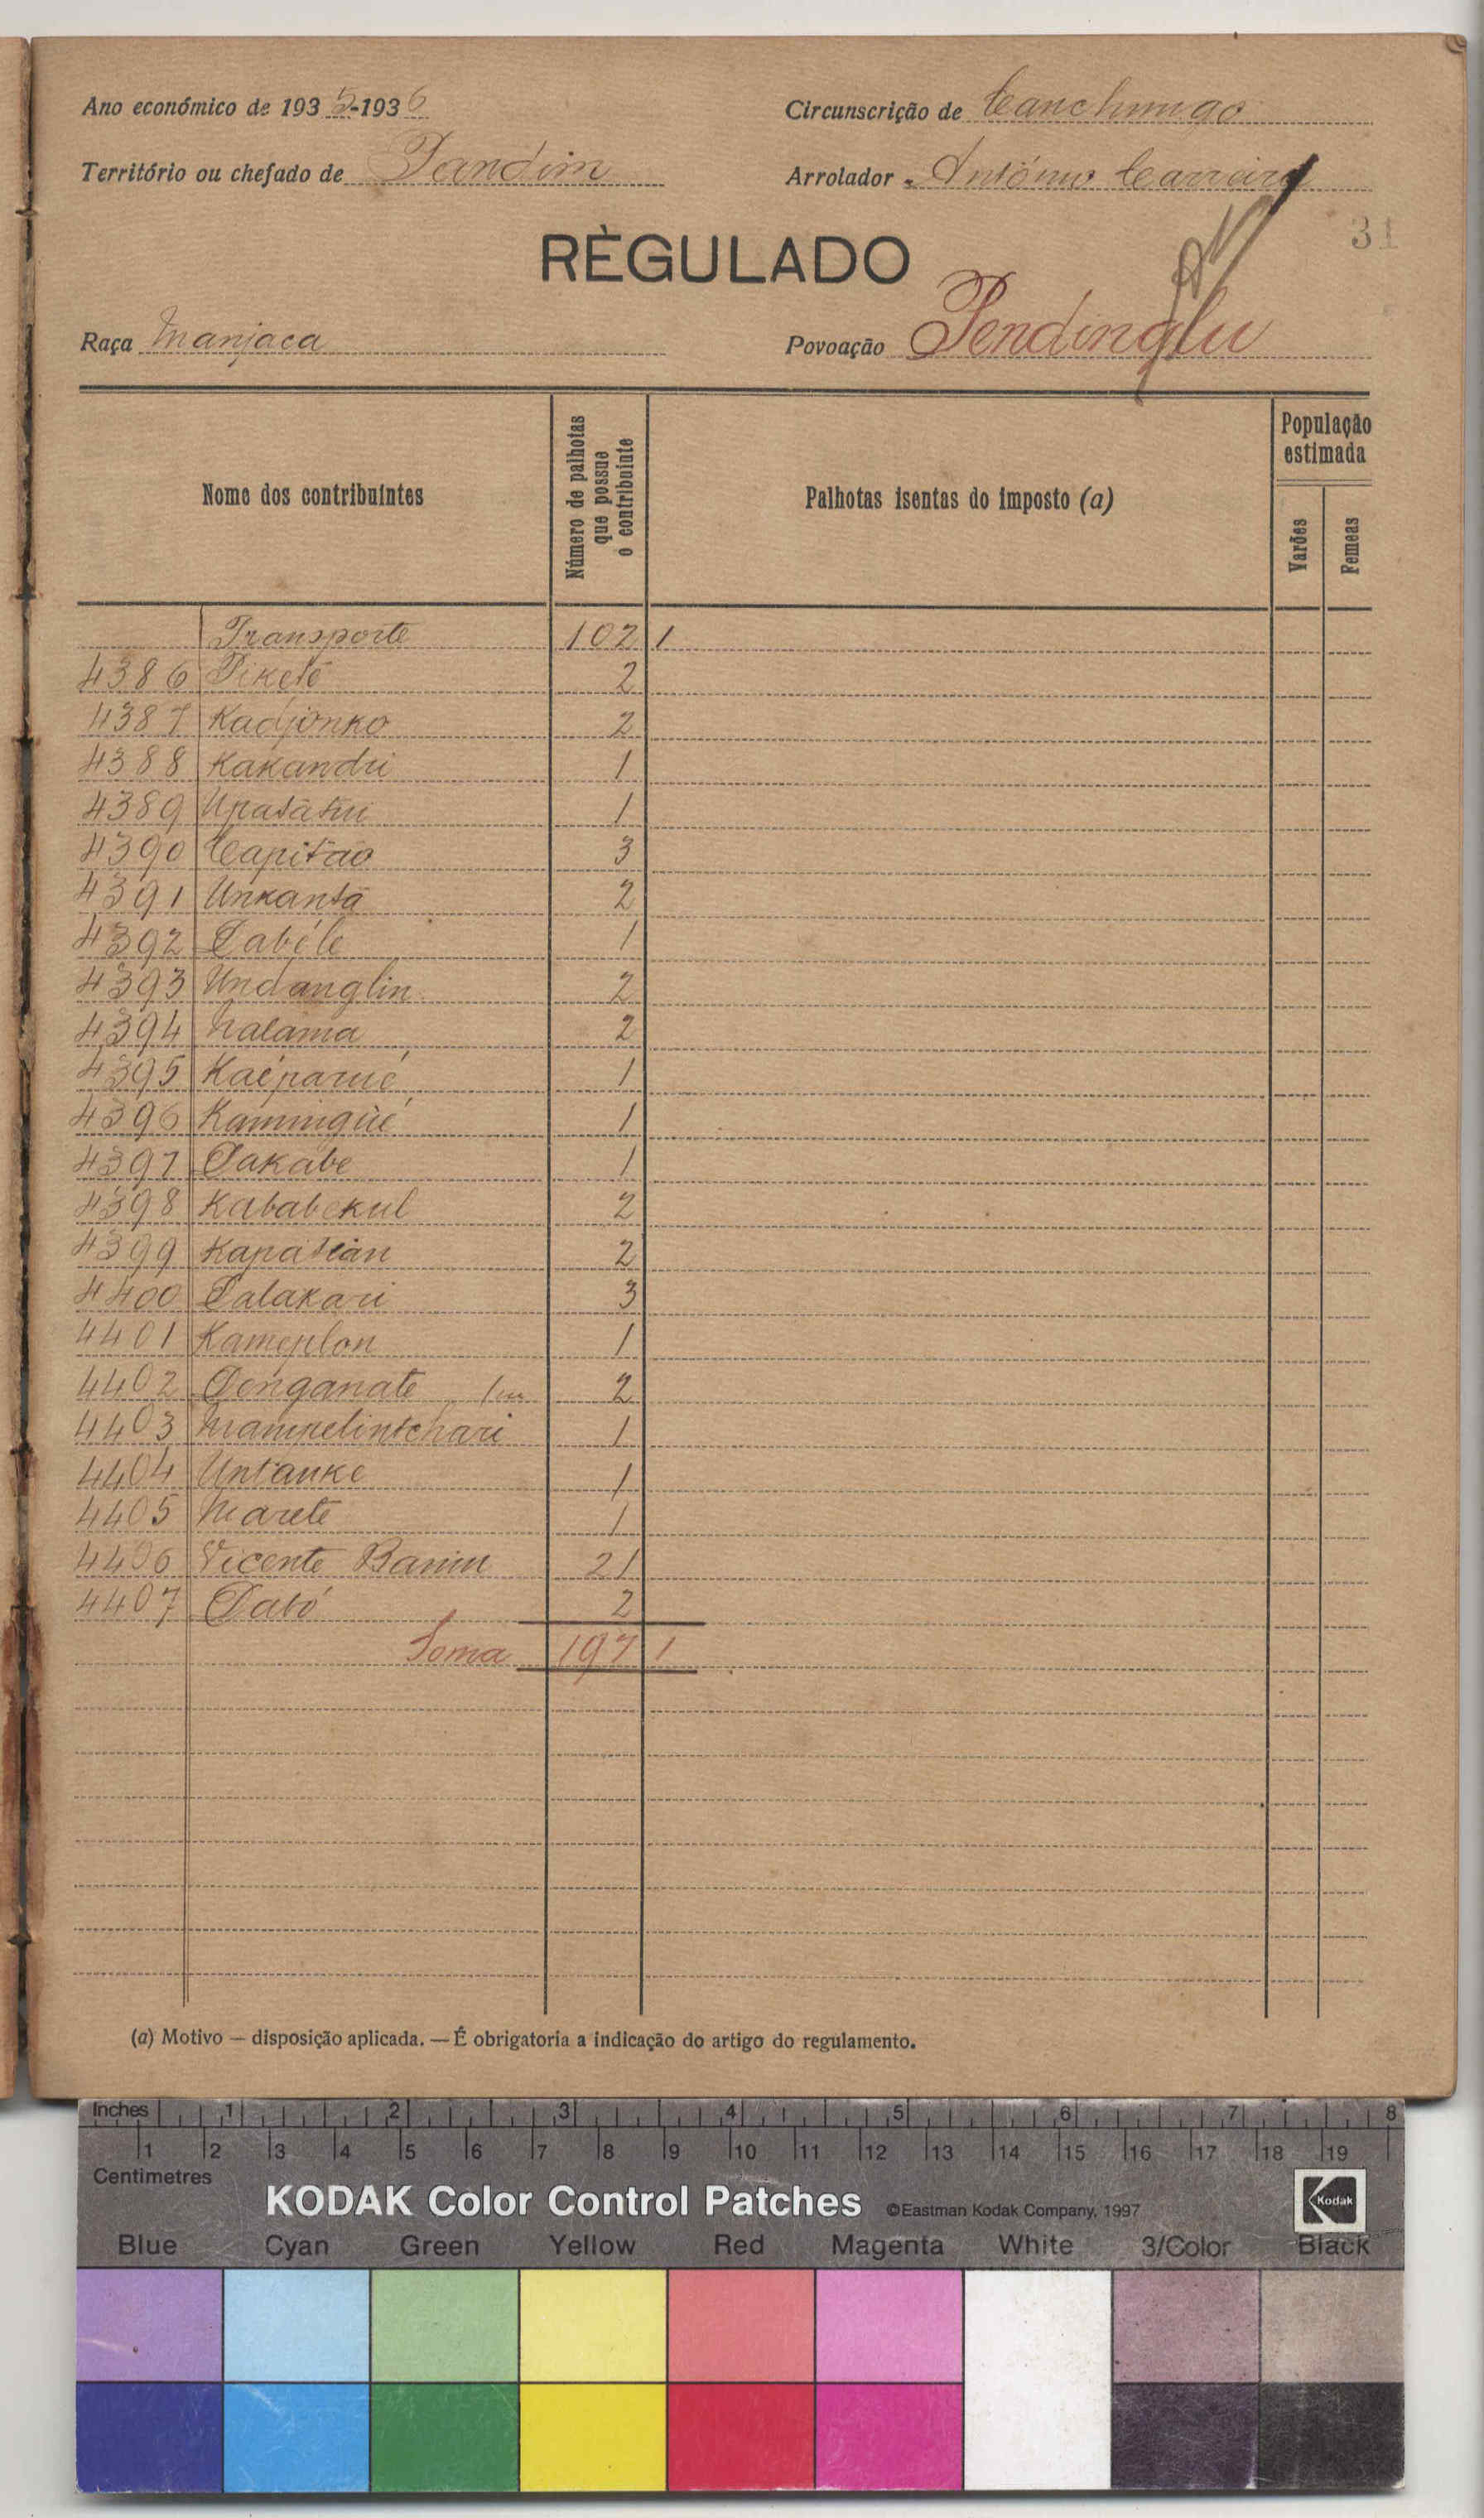 Ano económico de 1935-1936
Circunscrição de Canchungo
Território ou chefado de Pandim
Arrolador - António Carreira
31
RÈGULADO
Raça Manjaca
Povoação Pendinglu
Nome dos contribuintes
Número de palhotas que possue o contribuinte
Palhotas isentas do imposto (a)
População estimada
Varões
Femeas
Transporte 102 1
4386 Piketé 2
4387 Kadjonko 2
4388 Kakandu 1
4389 Upatátu 1
4390 Capitão 3
4391 Unkantá 2
4392 Pabéle 1
4393 Undanglin 2
4394 Nalama 2
4395 Kaéparué 1
4396 Kamingué 1
4397 Pakábe 1
4398 Kababekul 2
4399 Kapatian 2
4400 Palakari 3
4401 Kameplon 1
4402 Denganate 2
4403 Mampelintchari 1
4404 Untanke 1
4405 Marete 1
4406 Vicente Barim 21
4407 Pató 2
Soma 197 1
(a) Motivo — disposição aplicada. — É obrigatoria a indicação do artigo do regulamento.
Inches 1 2 3 4 5 6 7 8
1 2 3 4 5 6 7 8 9 10 11 12 13 14 15 16 17 18 19
Centimetres
KODAK Color Control Patches ©Eastman Kodak Company, 1997 Kodak
Blue Cyan Green Yellow Red Magenta White 3/Color Black